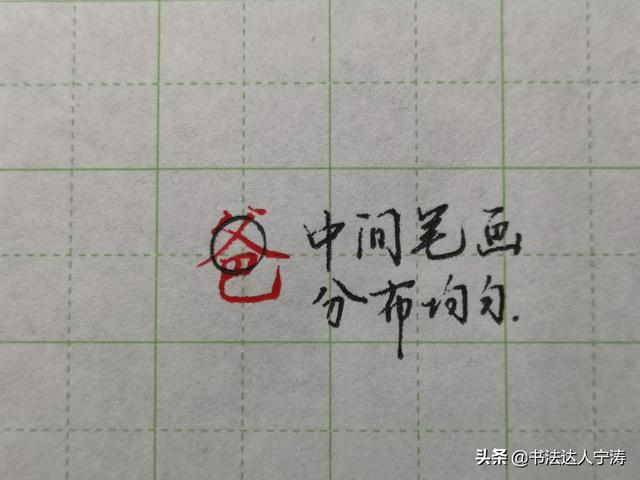 爸
中间笔画
分布均匀.
头条 @书法达人宁涛